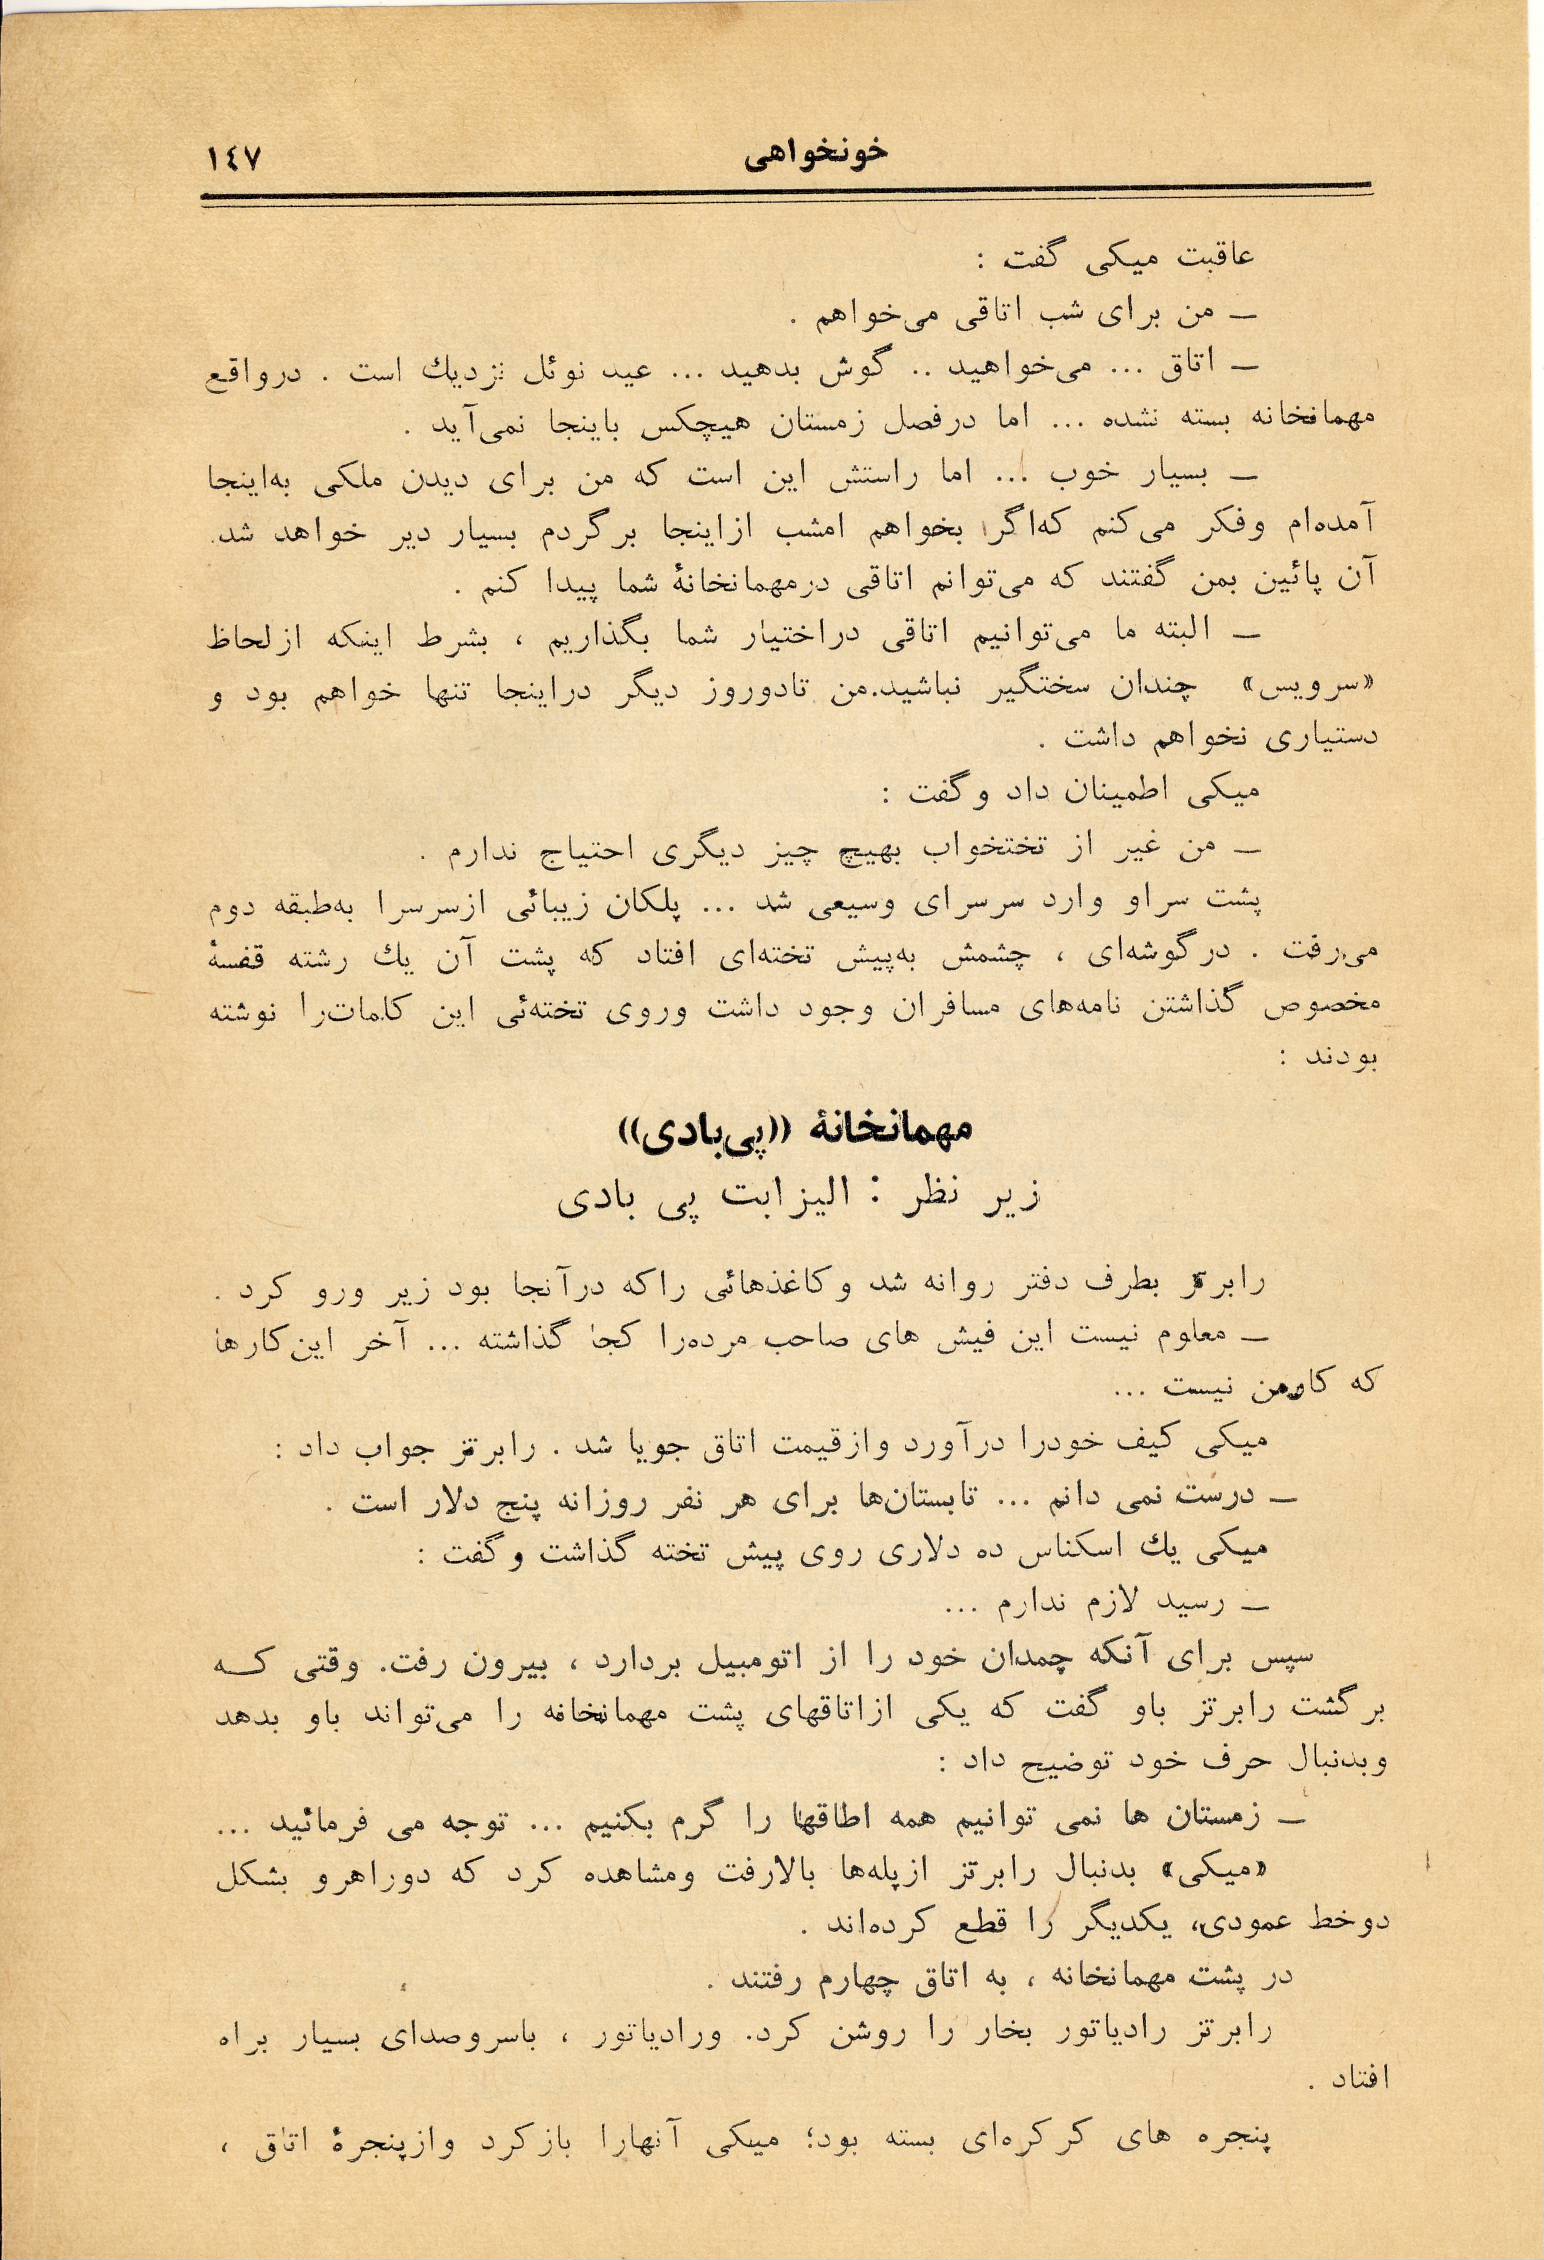 خونخواهی
١٤٧
عاقبت میکی گفت :
ـ من برای شب اتاقی می‌خواهم .
ـ اتاق ... می‌خواهید .. گوش بدهید ... عید نوئل نزدیك است . درواقع
مهمانخانه بسته نشده ... اما درفصل زمستان هیچکس باینجا نمی‌آید .
ـ بسیار خوب ... اما راستش این است که من برای دیدن ملکی به‌اینجا
آمده‌ام وفکر می‌کنم که‌اگر بخواهم امشب ازاینجا برگردم بسیار دیر خواهد شد.
آن پائین بمن گفتند که می‌توانم اتاقی درمهمانخانهٔ شما پیدا کنم .
ـ البته ما می‌توانیم اتاقی دراختیار شما بگذاریم ، بشرط اینکه ازلحاظ
«سرویس» چندان سختگیر نباشید.من تادوروز دیگر دراینجا تنها خواهم بود و
دستیاری نخواهم داشت .
میکی اطمینان داد وگفت :
ـ من غیر از تختخواب بهیچ چیز دیگری احتیاج ندارم .
پشت سراو وارد سرسرای وسیعی شد ... پلکان زیبائی ازسرسرا به‌طبقه دوم
می‌رفت . درگوشه‌ای ، چشمش به‌پیش تخته‌ای افتاد که پشت آن یك رشته قفسهٔ
مخصوص گذاشتن نامه‌های مسافران وجود داشت وروی تخته‌ئی این کلمات‌را نوشته
بودند :
مهمانخانهٔ ((پی‌بادی))
زیر نظر : الیزابت پی بادی
رابرتز بطرف دفتر روانه شد وکاغذهائی راکه درآنجا بود زیر ورو کرد .
ـ معلوم نیست این فیش های صاحب مرده‌را کجا گذاشته ... آخر این‌کارها
که کارمن نیست ...
میکی کیف خودرا درآورد وازقیمت اتاق جویا شد . رابرتز جواب داد :
ـ درست نمی دانم ... تابستان‌ها برای هر نفر روزانه پنج دلار است .
میکی یك اسکناس ده دلاری روی پیش تخته گذاشت وگفت :
ـ رسید لازم ندارم ...
سپس برای آنکه چمدان خود را از اتومبیل بردارد ، بیرون رفت. وقتی کـــه
برگشت رابرتز باو گفت که یکی ازاتاقهای پشت مهمانخانه را می‌تواند باو بدهد
وبدنبال حرف خود توضیح داد :
ـ زمستان ها نمی توانیم همه اطاقها را گرم بکنیم ... توجه می فرمائید ...
«میکی» بدنبال رابرتز ازپله‌ها بالارفت ومشاهده کرد که دوراهرو بشکل
دوخط عمودی، یکدیگر را قطع کرده‌اند .
در پشت مهمانخانه ، به اتاق چهارم رفتند .
رابرتز رادیاتور بخار را روشن کرد. ورادیاتور ، باسروصدای بسیار براه
افتاد .
پنجره های کرکره‌ای بسته بود؛ میکی آنهارا بازکرد وازپنجرهٔ اتاق ،